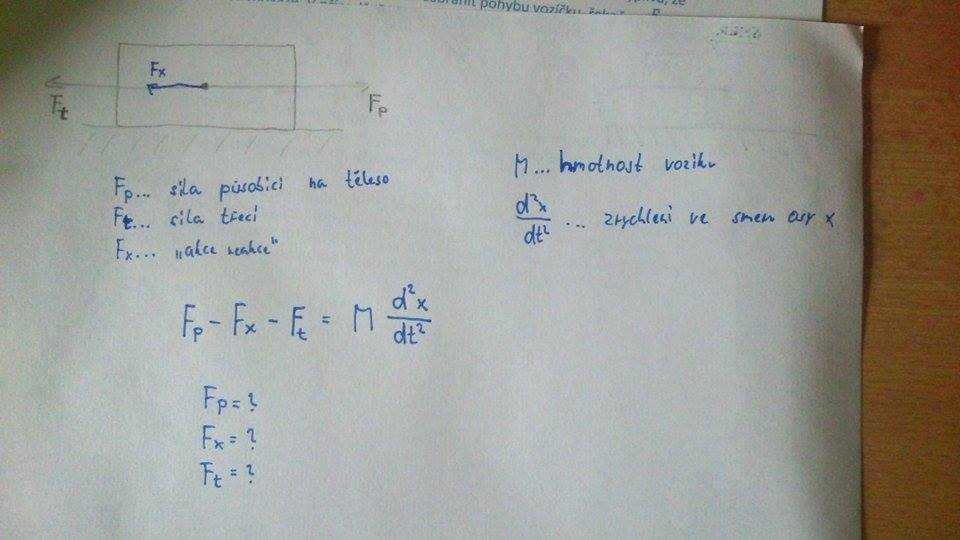 zabránit pohybu vozíčku,
Fx
Ft
Fp
Fp... síla působící na těleso
Ft... síla třecí
Fx... „akce reakce"
M... hmotnost vozíku
d²x/dt² ... zrychlení ve směru osy x
Fp - Fx - Ft = M d²x/dt²
Fp = ?
Fx = ?
Ft = ?